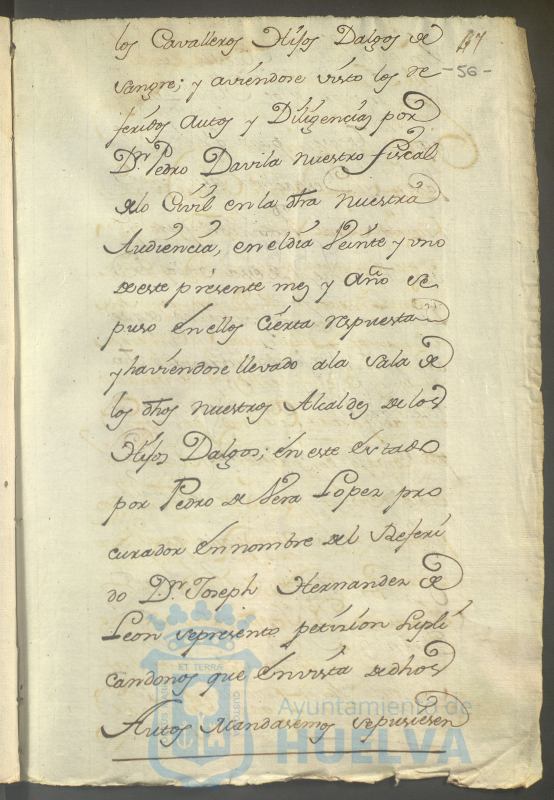 47
-56-
los Cavalleros Hijos Dalgos de
sangre; y aviendose visto los re
feridos autos y Diligencias por
Dn. Pedro Davila nuestro fiscal
de lo Civil en la dha nuestra
Audiencia, en el dia Veinte y uno
de este presente mes y año se
puso en ellos cierta respuesta
y haviendose llevado a la sala de
los dhos nuestros Alcaldes de los
Hijos Dalgos; en este estado
por Pedro de Vera Lopez pro
curador en nombre del referi
do Dn. Joseph Hernandez de
Leon se presento petizion supli
candonos que en vista de dhos
Autos mandasemos se pusiesen
ET TERRÆ
Ayuntamiento de
HUELVA